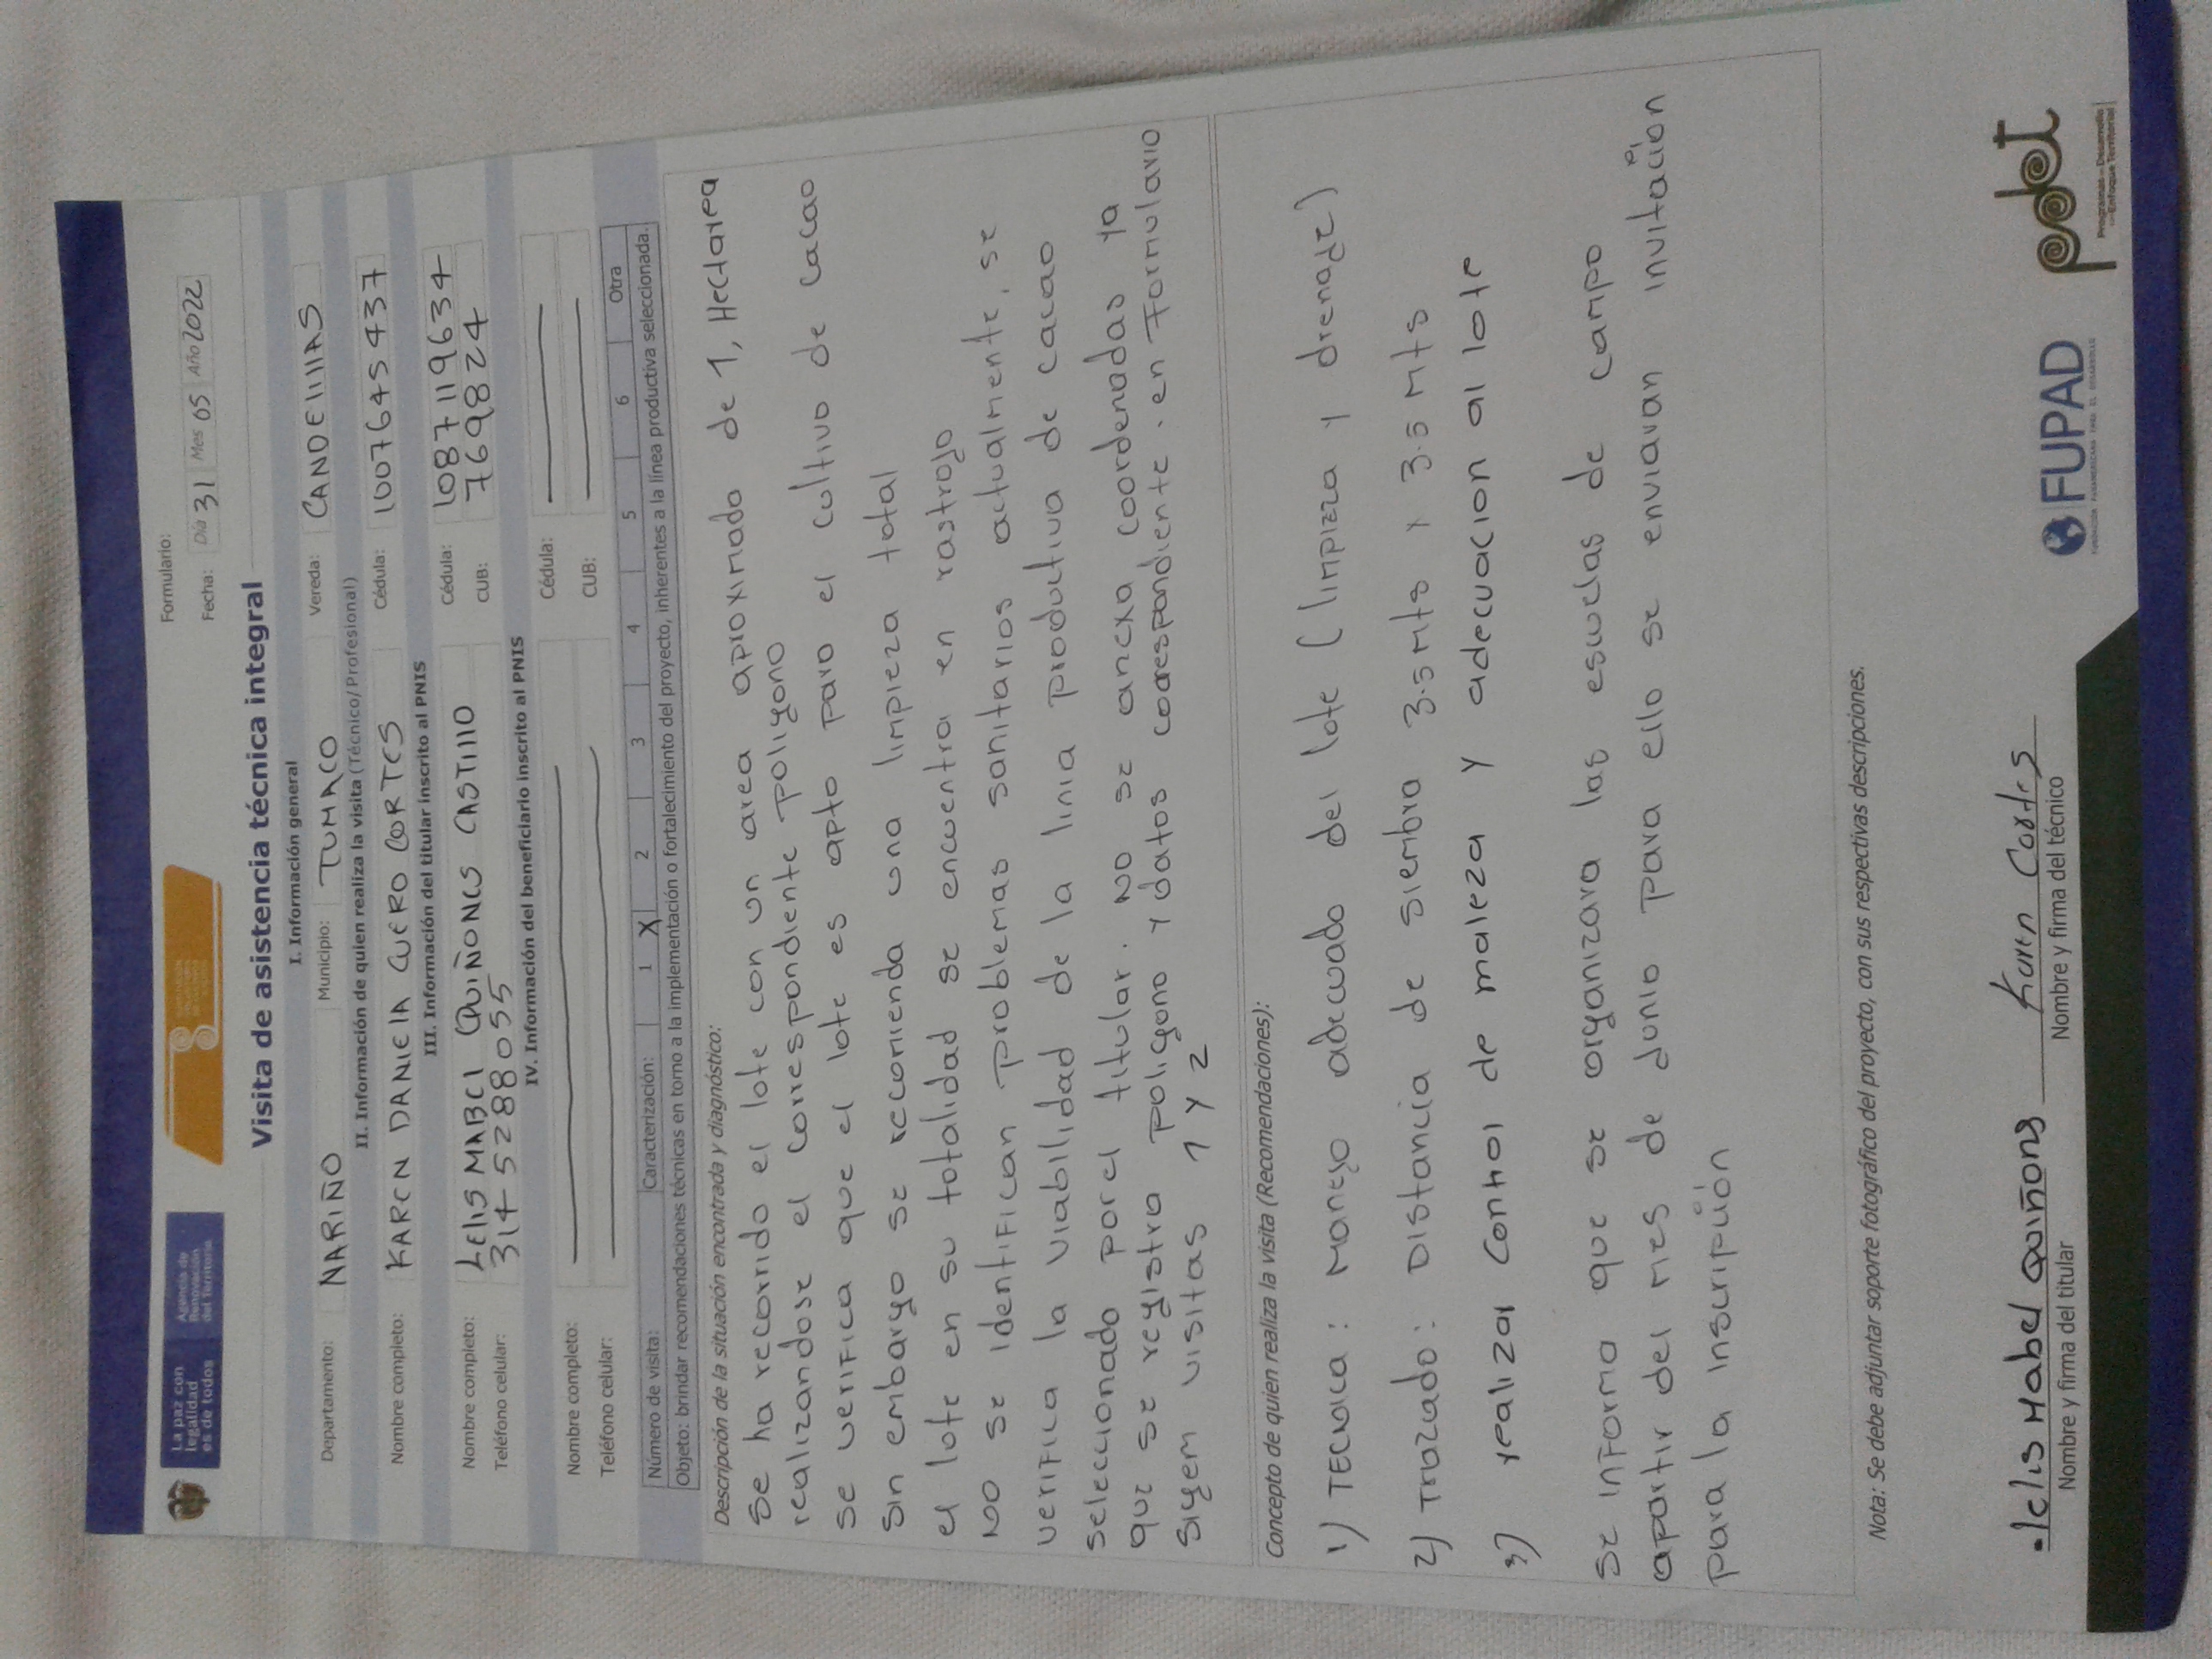 La paz con
legalidad
es de todos
Agencia de
Renovación
del Territorio
Formulario:
Fecha: Día 31 Mes 05 Año 2022
Visita de asistencia técnica integral
I. Información general
Departamento: NARIÑO Municipio: TUMACO Vereda: CANDElillAS
II. Información de quien realiza la visita (Técnico/Profesional)
Nombre completo: KAREN DANIElA CUERO CORTES Cédula: 1007645437
III. Información del titular inscrito al PNIS
Nombre completo: LElIS MABEl QUIÑONES CASTIllO Cédula: 1087119634
Teléfono celular: 3145288055 CUB: 769824
IV. Información del beneficiario inscrito al PNIS
Nombre completo: Cédula:
Teléfono celular: CUB:
Número de visita: Caracterización: 1 X 2 3 4 5 6 Otra
Objeto: brindar recomendaciones técnicas en torno a la implementación o fortalecimiento del proyecto, inherentes a la línea productiva seleccionada.
Descripción de la situación encontrada y diagnóstico:
Se ha recorrido el lote con un area aproximado de 1, Hectarea
realizandose el correspondiente poligono
Se verifica que el lote es apto para el cultivo de cacao
Sin embargo se recomienda una limpieza total
el lote en su totalidad se encuentra en rastrojo
No se identifican problemas sanitarios actualmente, se
verifica la viabilidad de la linia productiva de cacao
seleccionado por el titular. No se anexa coordenadas ya
que se registro poligono y datos correspondiente. en Formulario
Sigem visitas 1 y 2
Concepto de quien realiza la visita (Recomendaciones):
1) TECNICA: Manejo adecuado del lote (limpieza y drenage)
2) Trazado: Distancia de siembra 3.5 mts x 3.5 mts
3) realizar Control de maleza y adecuacion al lote
Se informa que se organizara las escuelas de campo
apartir del mes de Junio para ello se enviaran invitacion
para la inscripción
Nota: Se debe adjuntar soporte fotográfico del proyecto, con sus respectivas descripciones.
lelis Mabel Quiñones Karen Cortes
Nombre y firma del titular Nombre y firma del técnico
FUPAD
FUNDACIÓN PANAMERICANA PARA EL DESARROLLO
pdet
Programas de Desarrollo
con Enfoque Territorial